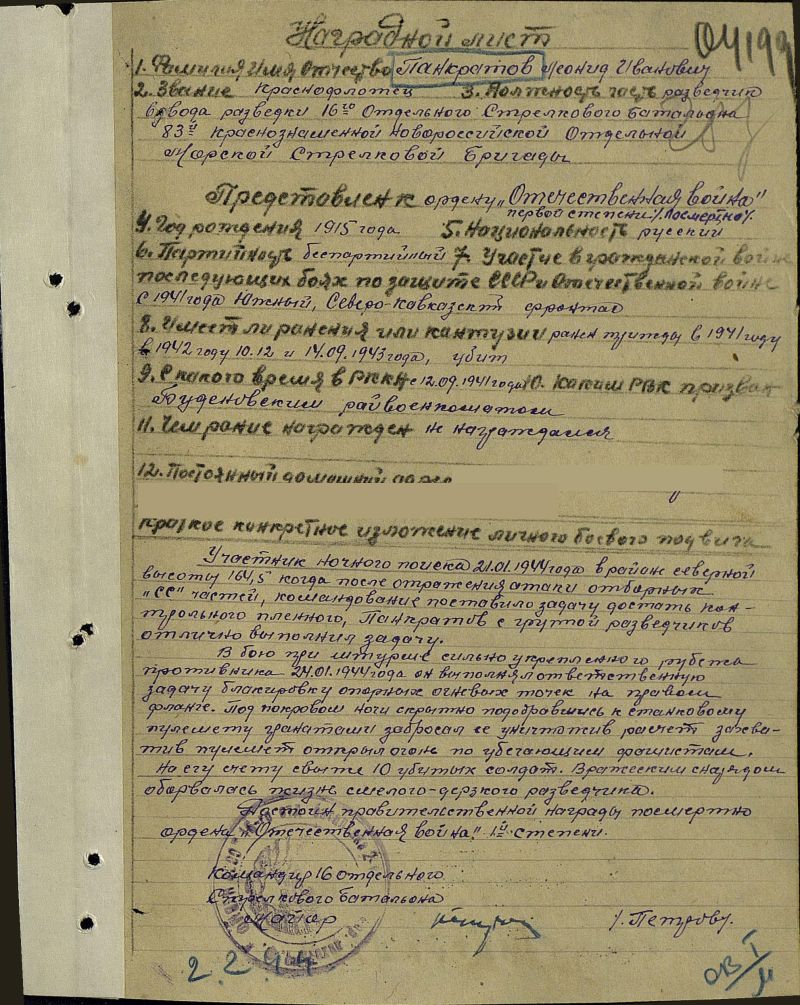 Наградной лист
1. Фамилия Имя Отчество Панкратов Леонид Иванович
2. Звание Краснофлотец 3. Должность развед разведчик
взвода разведки 16го Отдельного Стрелкового батальона
83й Краснознаменной Новороссийской Отдельной
Морской Стрелковой Бригады
Представлен к ордену „Отечественная война"
первой степени /Посмертно/.
4. Год рождения 1915 года 5. Национальность русский
6. Партийность беспартийный 7. Участие в гражданской войне
последующих боях по защите СССР и Отечественной войне
с 1941 года Южный, Северо-Кавказский фронтах
8. Имеет ли ранения или контузии ранен трижды в 1941 году
в 1942 году 10.12 и 14.09.1943 года, убит
9. С какого время в РККА с 12.09.1941 года 10. Каким РВК призван
Буденовским райвоенкоматом
11. Чем ранее награжден не награждался
12. Постоянный домашний адрес
краткое конкретное изложение личного боевого подвига
Участник ночного поиска 21.01.1944 года в районе северной
высоты 164,5 когда после отражения атаки отборных
„СС" частей, командование поставило задачу достать кон-
трольного пленного, Панкратов с группой разведчиков
отлично выполнил задачу.
В бою при штурме сильно укрепленного рубежа
противника 24.01.1944 года он выполнял ответственную
задачу блакировку опорных огневых точек на правом
фланге. Под покровом ночи скрытно подобравшись к станковому
пулемету гранатами забросал ее уничтожив расчет захва-
тив пулемет открыл огонь по убегающим фашистам.
На его счету свыше 10 убитых солдат. Вражеским снарядом
оборвалась жизнь смелого-дерзкого разведчика.
Достоин правительственной награды посмертно
ордена „Отечественная война" 1й степени.
Командир 16 отдельного
Стрелкового батальона
Майор /Петров/.
2.2.44